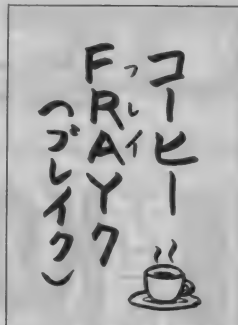 コーヒー
FRAYク
フレイ
(ブレイク)